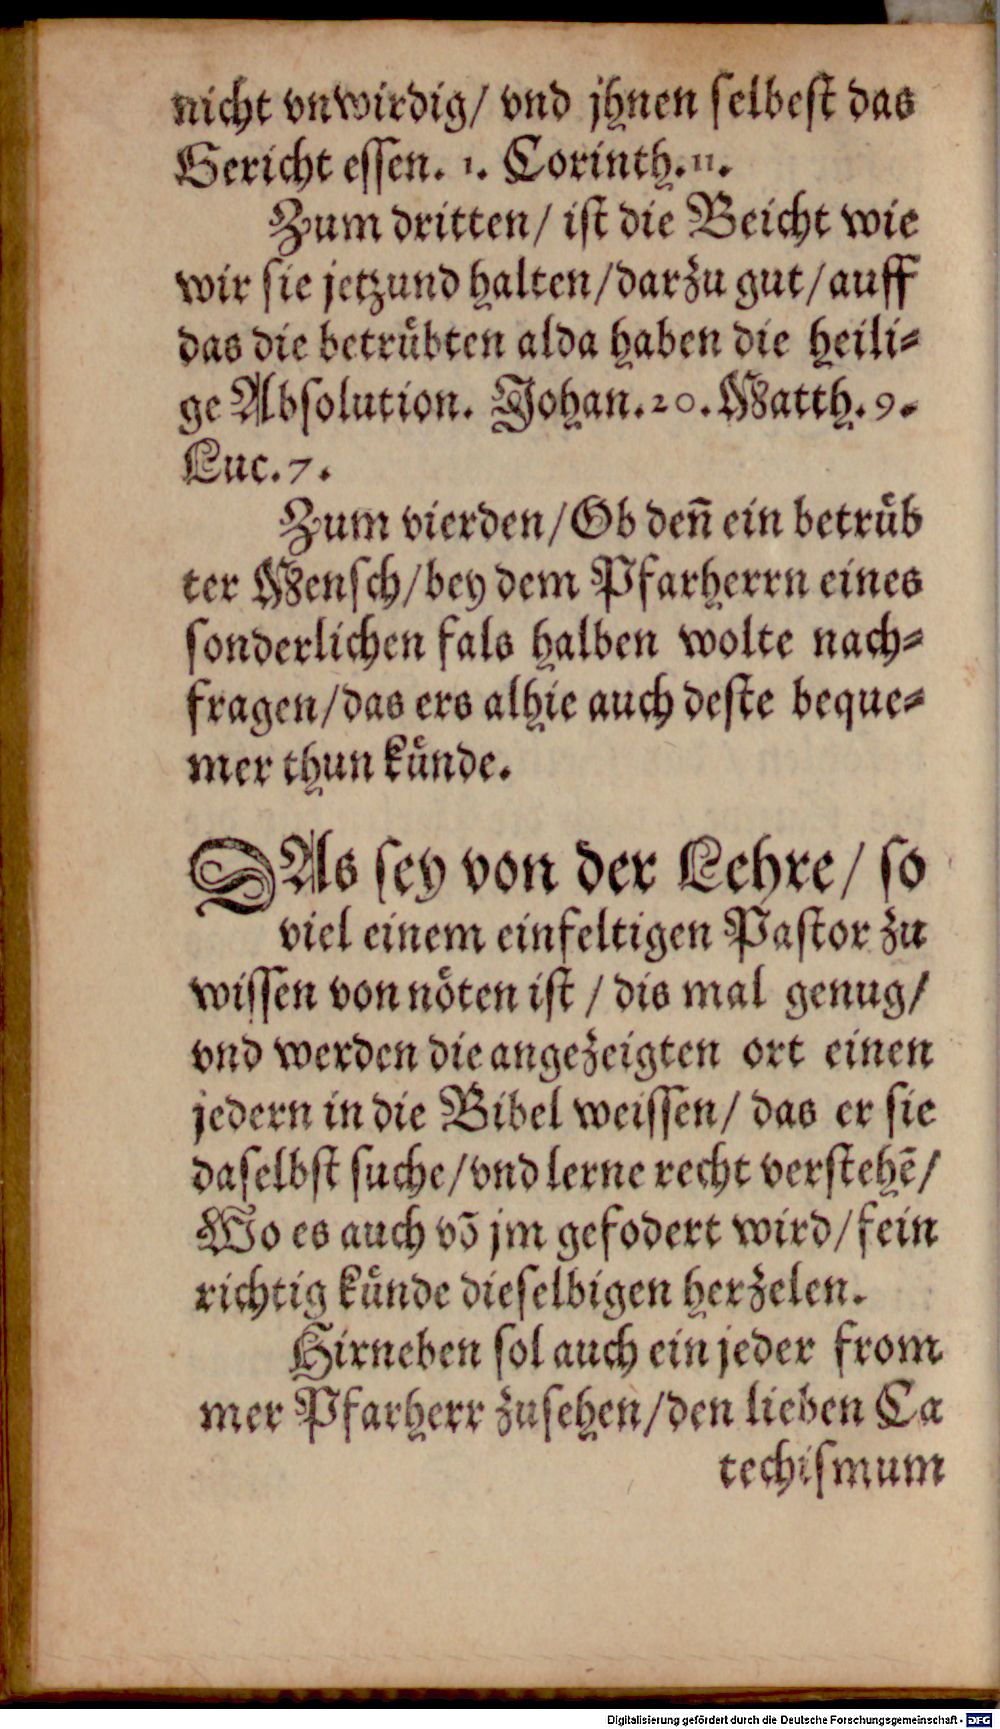 nicht vnwirdig/ vnd jhnen selbest das
Gericht essen. 1. Corinth. 11.
Zum dritten/ ist die Beicht wie
wir sie jetzund halten/ darzu gut/ auff
das die betruͤbten alda haben die heili⸗
ge Absolution. Johan. 20. Matth. 9.
Luc. 7.
Zum vierden/ Ob deñ ein betruͤb
ter Mensch/ bey dem Pfarherrn eines
sonderlichen fals halben wolte nach⸗
fragen/ das ers alhie auch deste beque⸗
mer thun kuͤnde.
DAs sey von der Lehre/ so
viel einem einfeltigen Pastor zu
wissen von noͤten ist/ dis mal genug/
vnd werden die angezeigten ort einen
jedern in die Bibel weissen/ das er sie
daselbst suche/ vnd lerne recht verstehẽ/
Wo es auch võ jm gefodert wird/ fein
richtig kuͤnde dieselbigen herzelen.
Hirneben sol auch ein jeder from
mer Pfarherr zusehen/ den lieben Ca
techismum
Digitalisierung gefördert durch die Deutsche Forschungsgemeinschaft - DFG